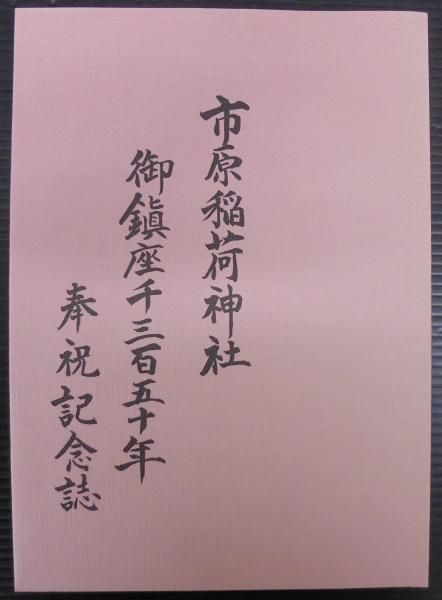 市原稲荷神社
御鎮座千三百五十年
奉祝記念誌